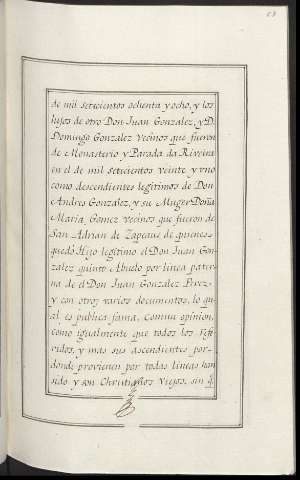 de mil setecientos ochenta y ocho, y los
hijos de otro Don Juan Gonzalez, y D.
Domingo Gonzalez Vecinos que fueron
de Monasterio y Parada da Riveira
en el de mil setecientos veinte y uno
como descendientes legitimos de Don
Andres Gonzalez, y su Muger Doña
Maria Gomez vecinos que fueron de
San Adrian de Zapeaus de quienes
quedó Hijo legitimo el Don Juan Gon
zalez quinto Abuelo por linea pater
na de el Don Juan Gonzalez Perez,
y con otros varios documentos, lo qu
al es publica fama, Comun opinion,
como igualmente que todos los refe
ridos, y mas sus ascendientes por
donde provienen por todas lineas han
sido y son Christianos Viejos, sin q.